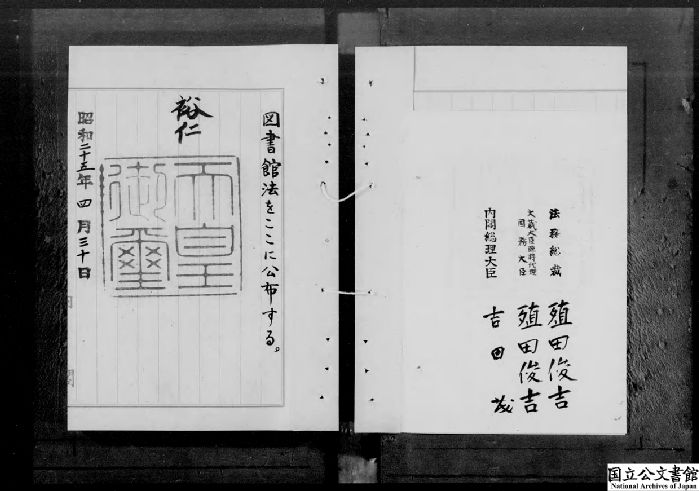 図書館法をここに公布する。
裕仁
天皇
御璽
昭和二十五年四月三十日
内閣総理大臣 吉田茂
大蔵大臣臨時代理
国務大臣 殖田俊吉
法務総裁 殖田俊吉
国立公文書館
National Archives of Japan